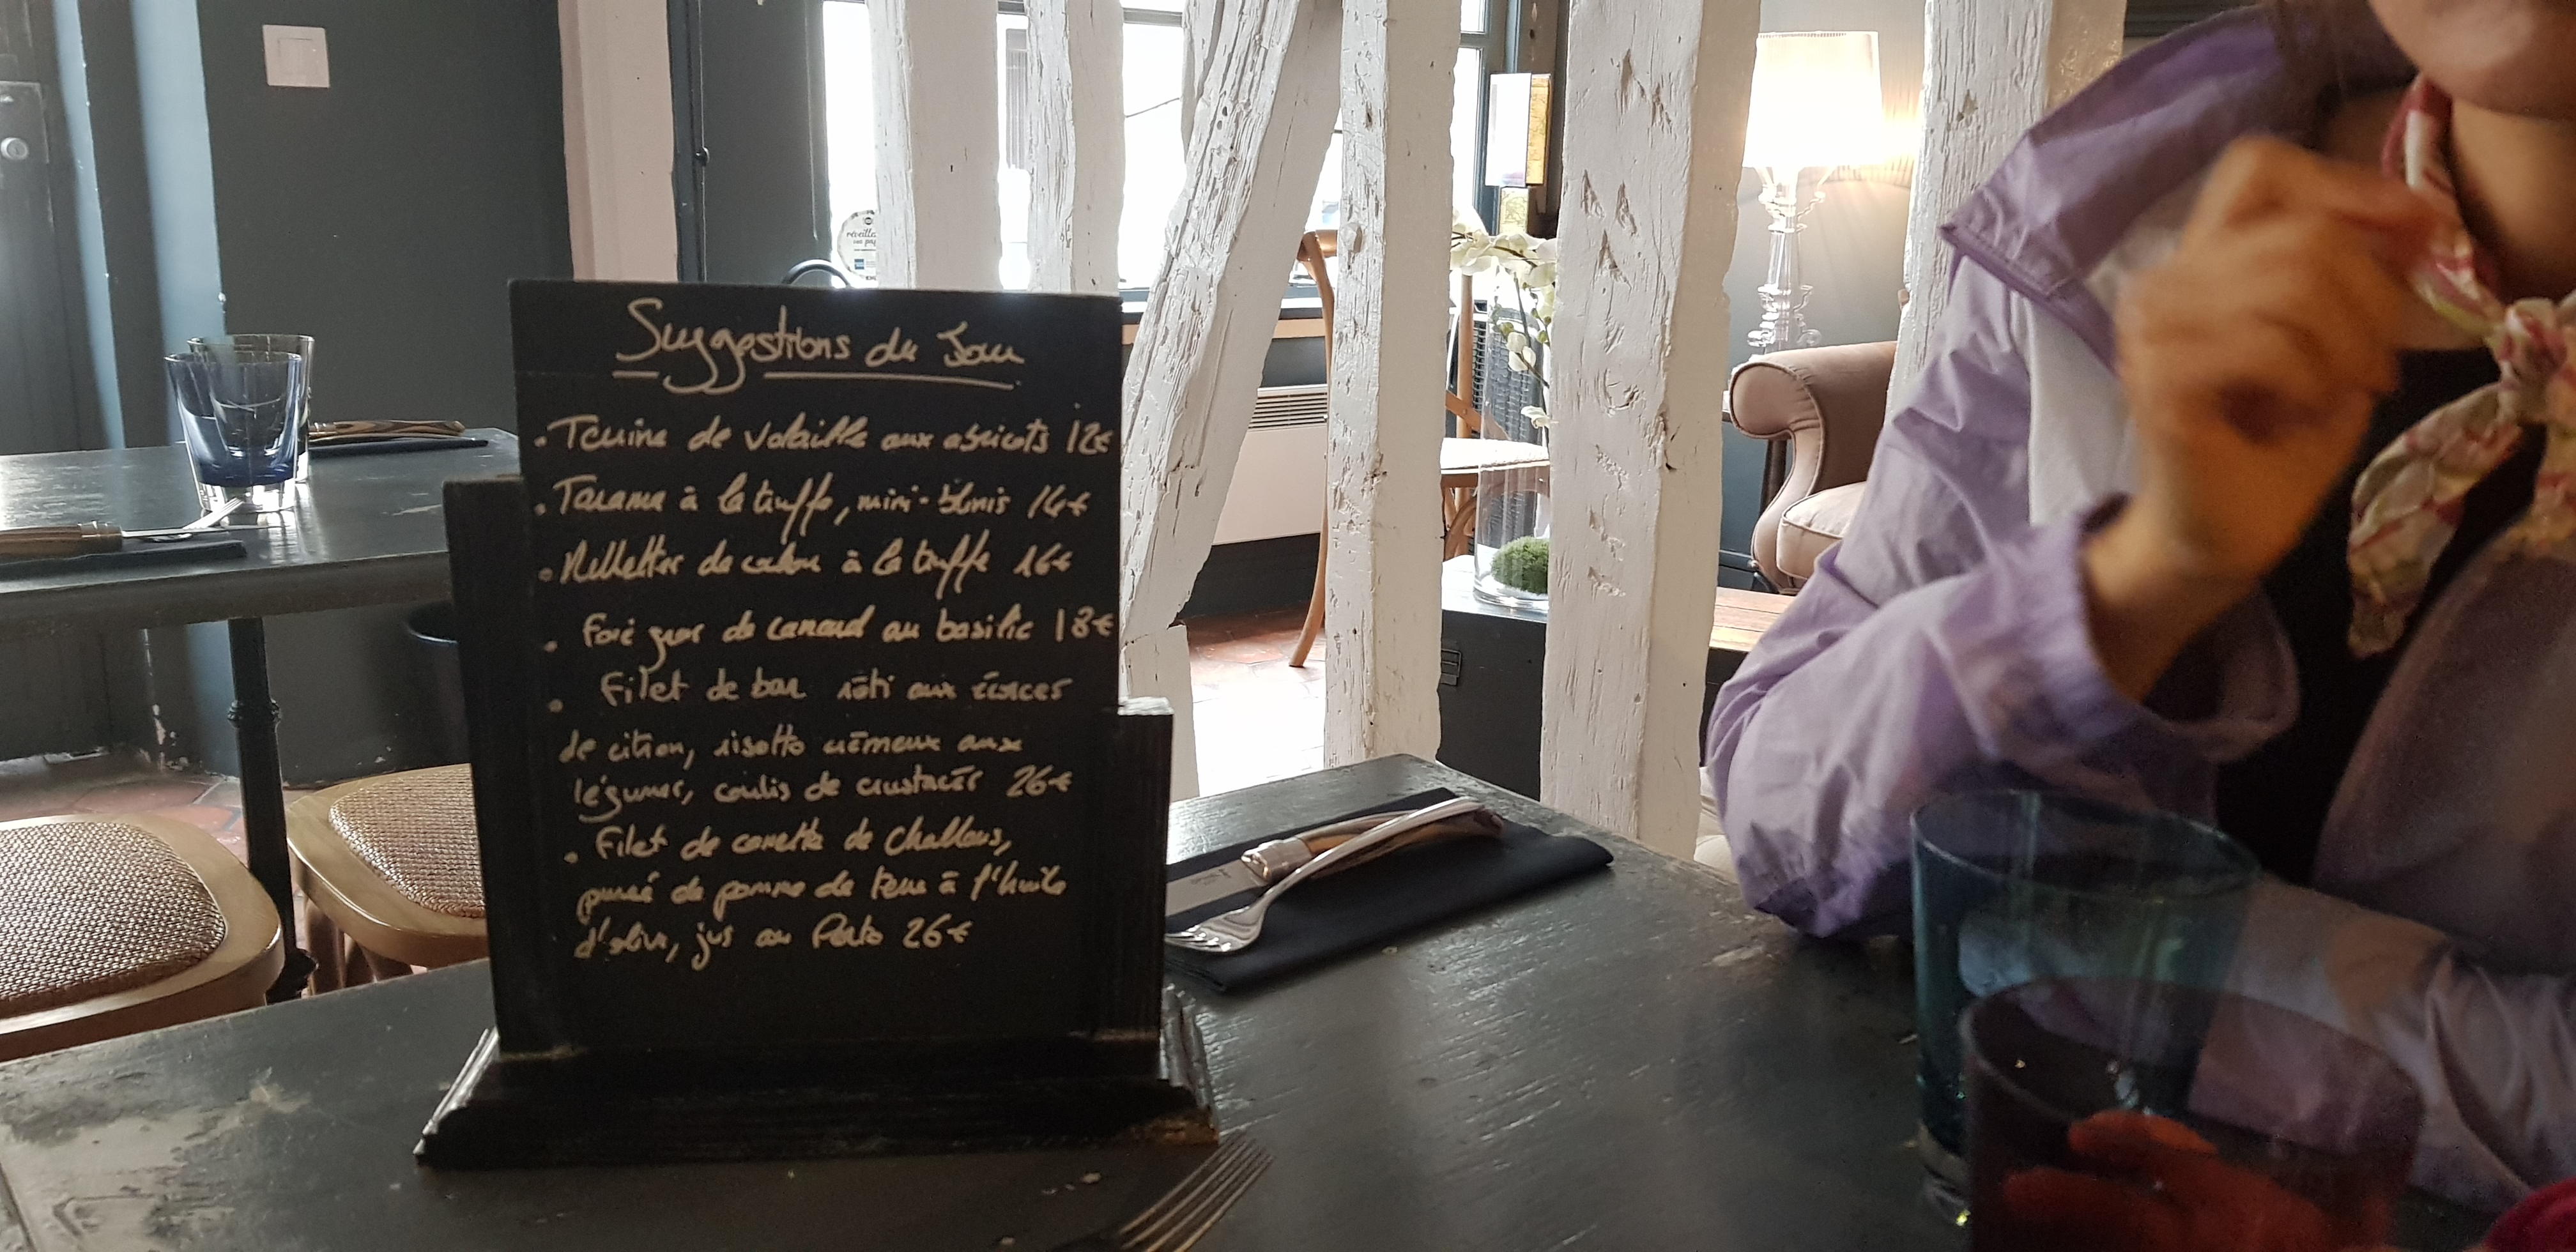 Suggestions du Jour
• Terrine de volaille aux abricots 12€
• Tarama à la truffe, mini-blinis 14€
• de à la truffe 16€
• foie gras de canard au basilic 18€
• Filet de bar rôti aux écorces
de citron, risotto crémeux aux
légumes, coulis de crustacés 26€
• Filet de canette de Challans,
purée de pomme de terre à l'huile
d'olive, jus au Porto 26€